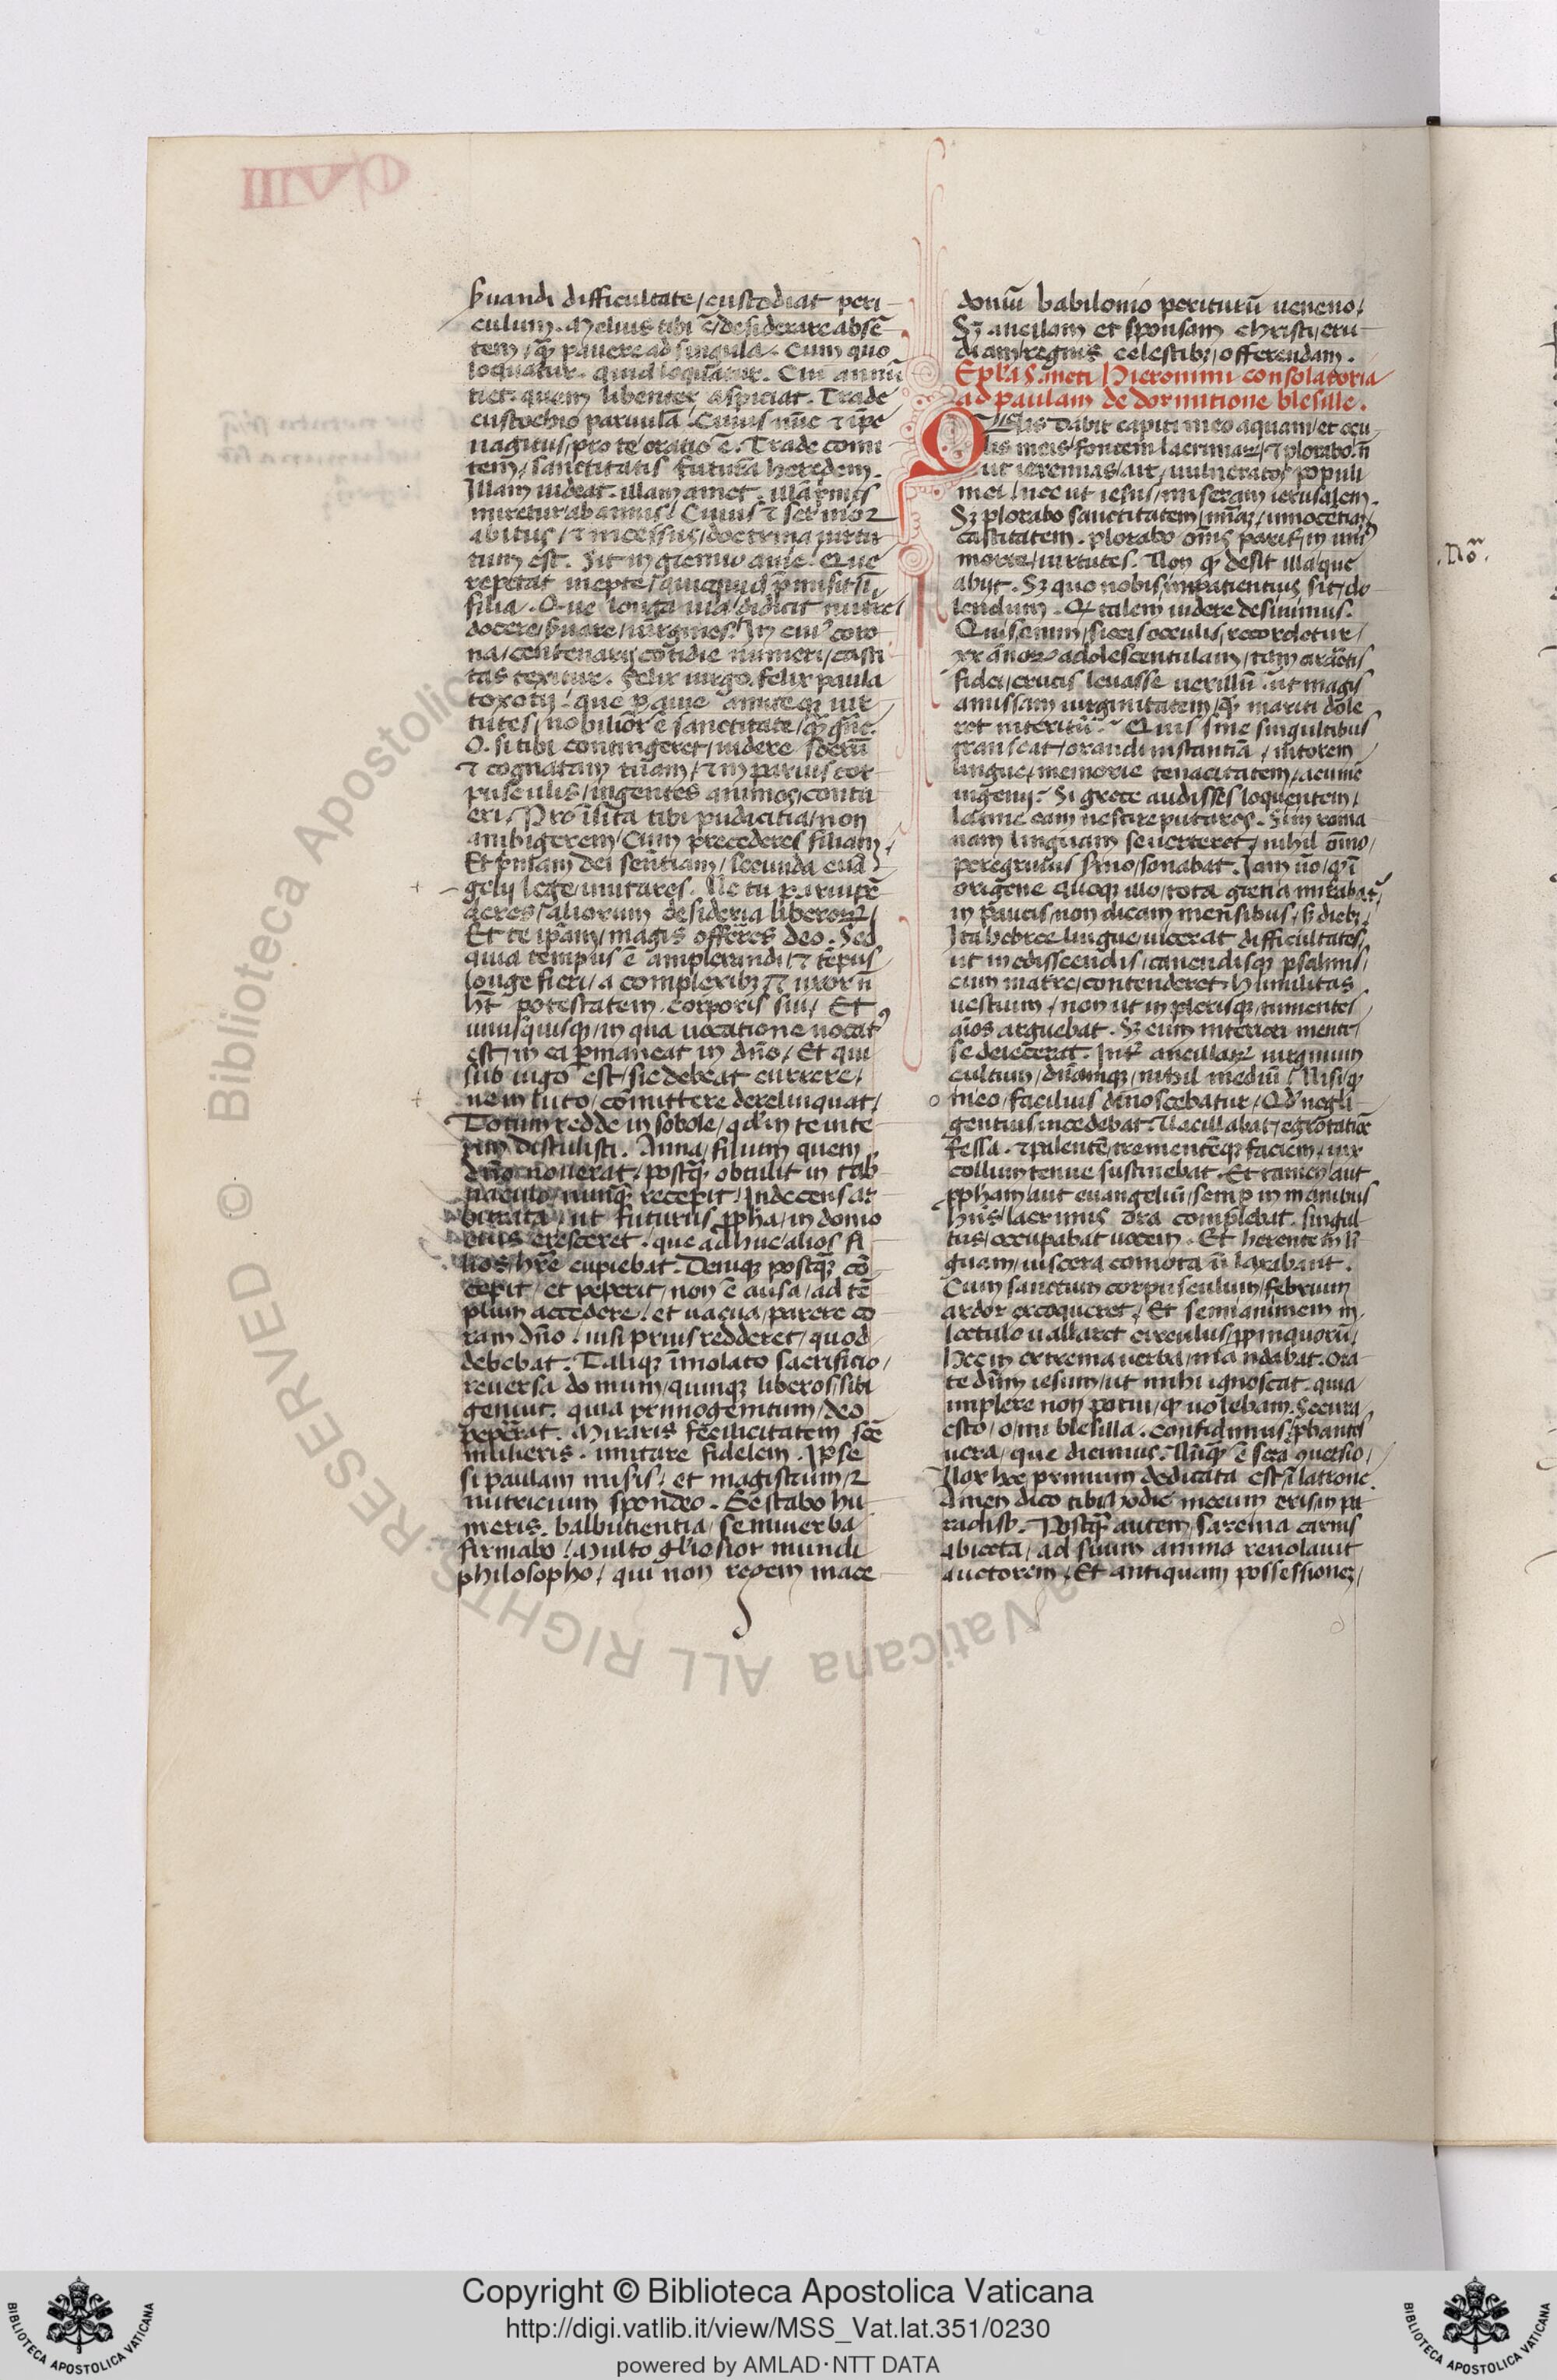 ẜuandi difficultate/custodiat peri
culum. Melius tibi ē/desiderare absē
tem/qȝ pauere ad singula. Cum quo
loquatur. quid loquatur. Cui annū
tiet. quem libenter aspiciat. Trade
eustochio paruulā. Cuius nūc ⁊ ip̄e
uagitus/pro te oratio ē. Trade comi
tem/sanctitatis futurā heredem.
Illam uideat. illam amet. illā primis
miretur ab annis/ Cuius ⁊ sermoꝛ
abitus/⁊ incessus/doctrina uirtu
tum est. Sit in gremio auie. Que
repetat inepte/quicquid p̄misit sū
filia. Que longa uia/didicit nutrire/
docere/ẜuare/uirgines. In cuiꝰ coro
na/centenarij cotidie numeri/casti
tas texitur. Felix uirgo. felix paula
toxotij/ que ꝑ auie amiteqȝ uir
tutes/nobilior ē sanctitate/qȝ gn̄e.
O. si tibi contingeret/uidere socrū
⁊ cognatam tuam/⁊ in paruis cor
pusculis/ingentes animos/contu
eri. Pro insita tibi pudicitia/non
ambigerem/Cum precederes filiam/
Et p̄mam dei sentiam/secunda euā
gelij lege/mutares. Ne tu paruipē
deres/aliorum desideria liberoꝝ/
Et te ip̄am/magis offerres deo. Sed
quia tempus ē amplexandi/⁊ tēpus
longe fieri/a complexibȝ/⁊ uxor n̄
ht̄ potestatem corporis sui/ Et
unusquisqȝ/in qua uocatione uocatꝰ
est/in ea ꝑmaneat in dn̄o/ Et qui
sub iugo est/sic debeat currere/
ne in luto/cōmittere derelinquat/
Totum redde in sobole/qd̓ in te inte
rim distulisti. Anna/filium quem
dn̄o nouerat/postqȝ obtulit in tab
naculo/nunqȝ recepit/Indecens ar
bitrata/ut futurus ꝓpha/in domo
eius cresceret. que adhuc/alios fi
lios/hr̄e cupiebat. Deniqȝ postqȝ cō
cepit/et peperit/non ē ausa/ad tē
plum accedere/et uacua/parere co
ram dn̄o/nisi prius redderet/quod
debebat. Taliqȝ īmolato sacrificio/
reuersa domum/quinqȝ liberos/sibi
genuit. quia primogenitum/deo
pepēat. Miraris felicitatem scē
mulieris. imitare fidelem. Ipse
si paulam misis/ et magistrum/⁊
nutricium spondeo. Gestabo hu
meris. balbutientia/semuerba
firmabo/Multo gl̓iosior mundi
philosopho/ qui non regem mace
doniū babilonio periturū ueneno/
Sȝ ancilam et sponsam christi/eru
diam/regnis celestibȝ/offerendam.
Epl̓a Sancti Hieronimi consolatoria
ad paulam de dormitione blesille.
Quis dabit capiti meo aquam/et ocu
lis meis/fontem lacrimaꝝ/⁊ plorabo/n̄
ut ieremias/ait/uulneratos populi
mei/nec ut iesus/miseram ierusalem.
Sȝ plorabo sanctitatem/mīaꝝ/innocētiā/
castitatem. plorabo oms̄ pariṫ/in uniꝰ
morte/uirtutes. Non qȝ desit illa que
abijt. Sȝ quo nobis/impatientius sit/do
lendum. Qȝ talem uidere desiuimus.
Quis enim/siccis occulis/recordetur/
xx ānoꝝ adolescentulam/tam ardētis
fidei/crucis leuasse uexillū/ut magis
amissam uirginitatem/qȝ mariti dole
ret interitū? Quis sine singultibus
transeat/orandi instantiā/nitorem
lingue/memorie tenacitatem/acumē
ingenij? Si grece audisses loquentem/
latine eam nescire putares. Sin roma
nam linguam se uerteret/nihil om̄o/
peregrinus ẜmo/sonabat. Jam ūo/qd̓ ī
origene quoqȝ illo/tota grecia mirabat̓/
in paucis/non dicam mensibus/ẜ diebȝ
Ita hebree lingue/uicerat difficultates/
ut in ediscendis/canendisqȝ psalmis/
cum matre/contenderet. Humilitas
uestium/non ut in plerisqȝ/tumentes
aīos arguebat. Sȝ cum interiori mente
se deiecerat. Inṫ ancillaꝝ uirginum
cultum/dn̄amqȝ/nihil mediū/ Nisi/qȝ
in eo/facilius dinoscebatur/Qd̓ negli
gentius incedebat. Uacillabat/egrotatiōe
fessa. ⁊ palentē/trementēqȝ faciem/uix
collum tenue sustinebat. Et tamen/aut
ꝓpham/aut euangeliū/semꝑ in manibus
hn̄s/lacrimis ora complebat. singul
tus/occupabat uocem. Et herente in lī
guam/uiscera comota n̄ laxabant.
Cum sanctum corpusculum/febrium
ardor excoqueret/ Et semianimem in
lectulo uallaret circulus/ꝓpinquorū/
hec in extrema uerba/mandabat. Ora
te dn̄m iesum/ut mihi ignoscat. quia
implere non potui/qȝ uolebam. Secura
esto/o/mi blesilla. confidimus/ꝓbantes
uera/que dicimus. Nūqȝ ē sera ꝯuersio/
Uox hec primum dedicata est ī latrone.
Amen dico tibi/hodie mecum eris in pa
radiso. Postqȝ autem/sarcina carnis
abiecta/ad suum anima reuolauit
auctorem/ Et antiquam possessionez/
.No͞.
Copyright © Biblioteca Apostolica Vaticana
http://digi.vatlib.it/view/MSS_Vat.lat.351/0230
powered by AMLAD·NTT DATA
BIBLIOTECA APOSTOLICA VATICANA
BIBLIOTECA APOSTOLICA VATICANA
© Biblioteca Apostolica Vaticana ALL RIGHTS RESERVED